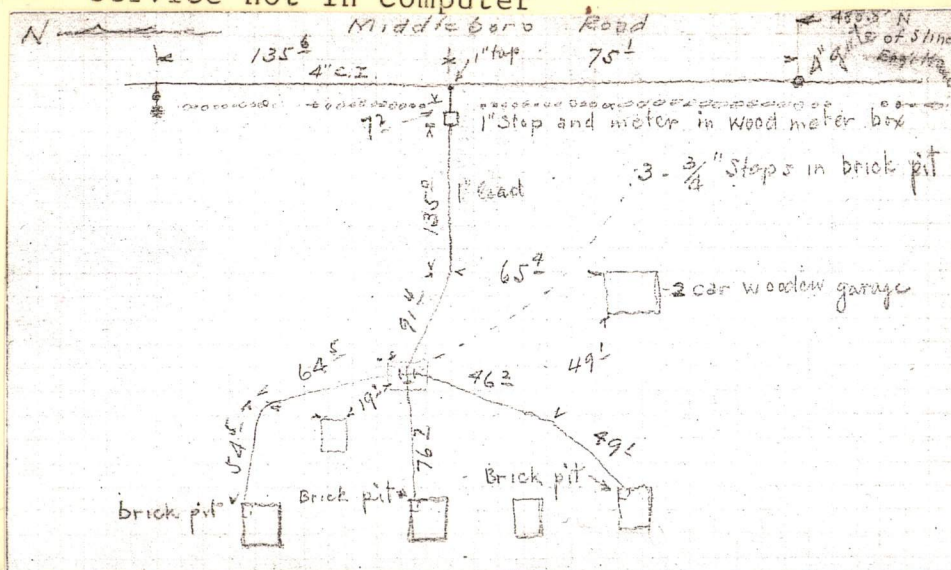 Service not in Computer
N
Middleboro Road
488.5' N
of S line
135 6
1" tap
75 1
4" C.I.
7 2
1" Stop and meter in wood meter box
3 - 3/4" Stops in brick pit
135 0
1" Lead
65 4
2 car wooden garage
91
64 5
46 2
49 1
19
54 5
76 2
49 1
brick pit
Brick pit
Brick pit